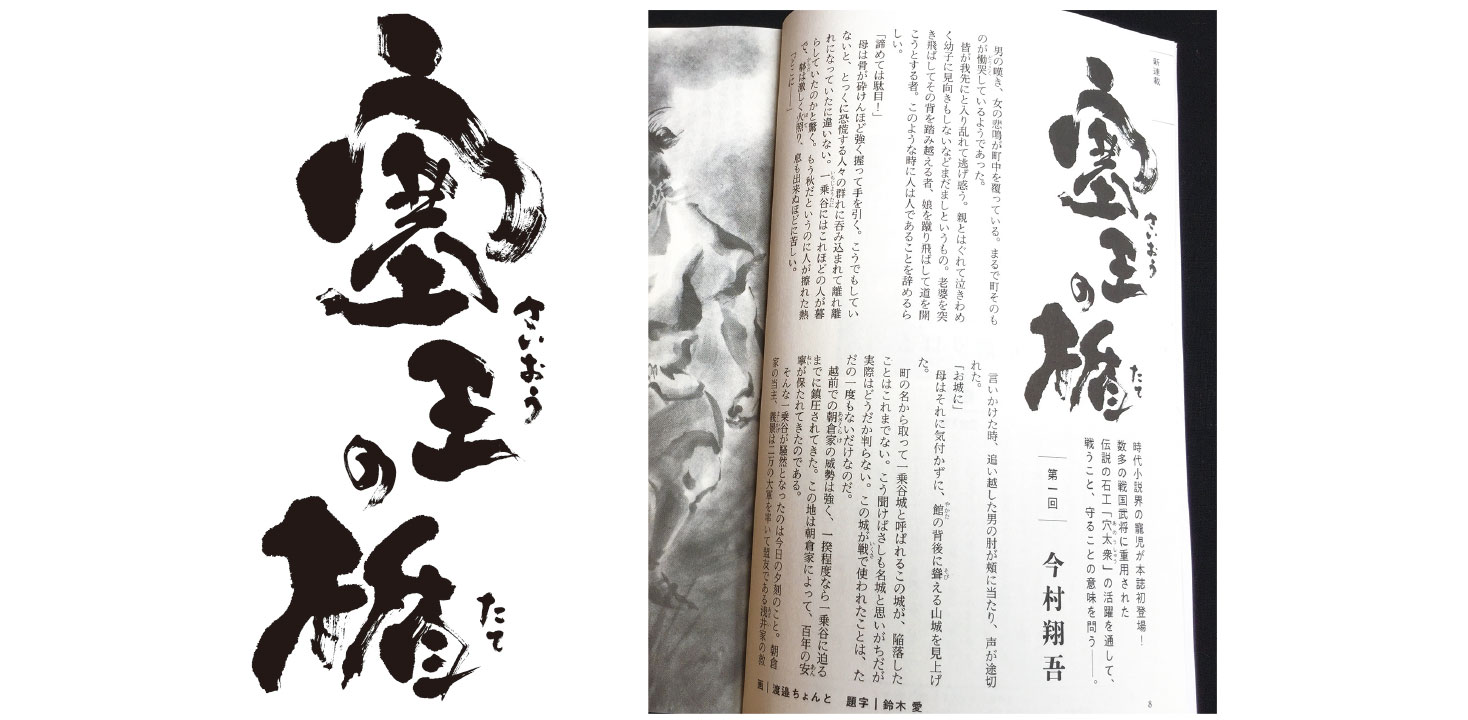 塞王の楯
さいおう
たて
新連載
塞王の楯
さいおう
たて
時代小説界の寵児が本誌初登場！
数多の戦国武将に重用された
伝説の石工「穴太衆」の活躍を通して、
戦うこと、守ることの意味を問う――。
第一回
今村翔吾
男の嘆き、女の悲鳴が町中を覆っている。まるで町そのも
のが慟哭しているようであった。
皆が我先にと入り乱れて逃げ惑う。親とはぐれて泣きわめ
く幼子に見向きもしないなどまだましというもの。老婆を突
き飛ばしてその背を踏み越える者、娘を蹴り飛ばして道を開
こうとする者。このような時に人は人であることを辞めるら
しい。
「諦めては駄目！」
母は骨が砕けんほど強く握って手を引く。こうでもしてい
ないと、とっくに恐慌する人々の群れに呑み込まれて離れ離
れになっていたに違いない。一乗谷にはこれほどの人が暮
らしていたのかと驚く。もう秋だというのに人が擦れた熱
で、躰は激しく火照り、息も出来ぬほどに苦しい。
「どこに――」
言いかけた時、追い越した男の肘が頰に当たり、声が途切
れた。
「お城に」
母はそれに気付かずに、館の背後に聳える山城を見上げ
た。
町の名から取って一乗谷城と呼ばれるこの城が、陥落した
ことはこれまでない。こう聞けばさしも名城と思いがちだが
実際はどうだか判らない。この城が戦で使われたことは、た
だの一度もないだけなのだ。
越前での朝倉家の威勢は強く、一揆程度なら一乗谷に迫る
までに鎮圧されてきた。この地は朝倉家によって、百年の安
寧が保たれてきたのである。
そんな一乗谷が騒然となったのは今日の夕刻のこと。朝倉
家の当主、義景は二万の大軍を率いて盟友である浅井家の救
画｜渡邉ちょんと　題字｜鈴木 愛
8